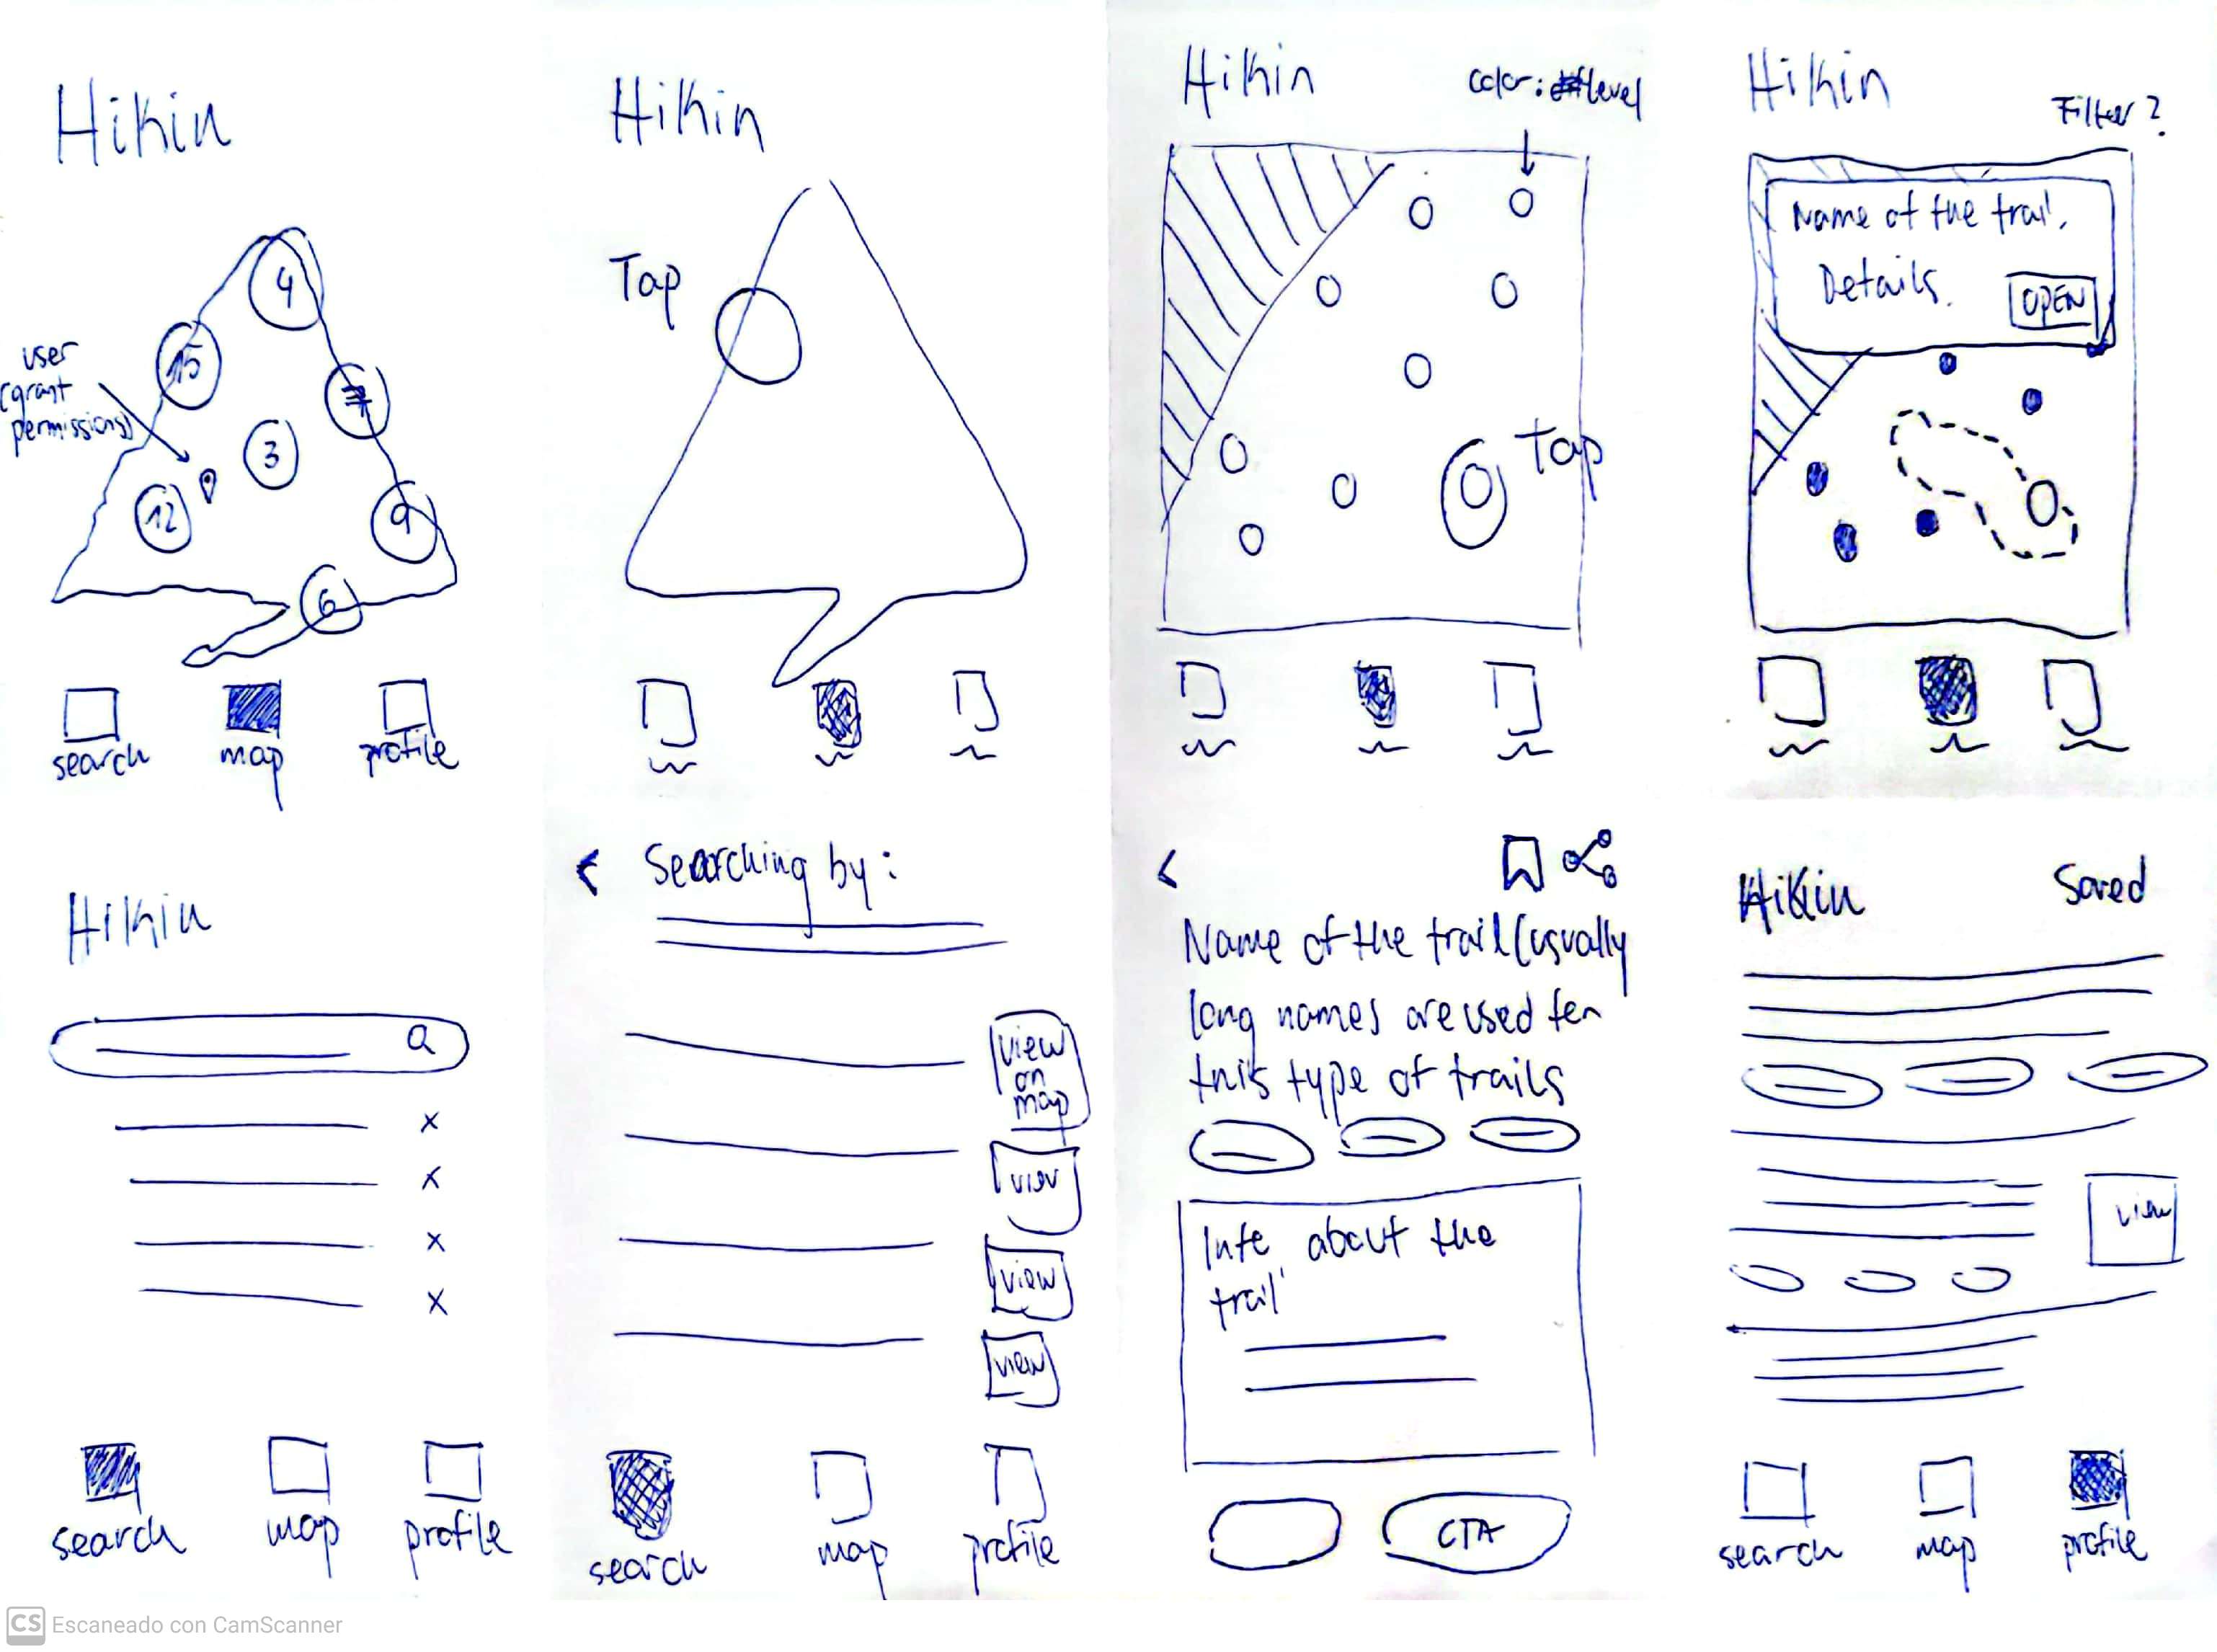 Hikin
4
15
7
3
12
9
6
user
(grant
permissions)
search
map
profile
Hikin
Tap
Hikin
color: level
Tap
Hikin
Filter?
Name of the trail.
Details.
OPEN
Hikin
search
map
profile
Searching by:
view
on
map
view
view
view
search
map
profile
Name of the trail (usually
long names are used for
this type of trails
Info about the
trail
CTA
Hikin
Saved
view
search
map
profile
CS Escaneado con CamScanner